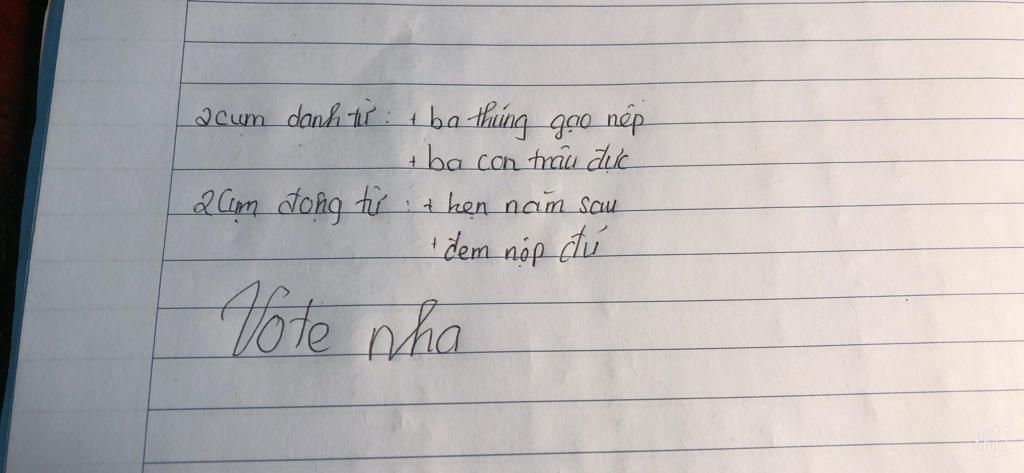 2 cụm danh từ : + ba thúng gạo nếp
+ ba con trâu đực
2 Cụm động từ : + hẹn năm sau
+ đem nộp đủ
Vote nha
BG12